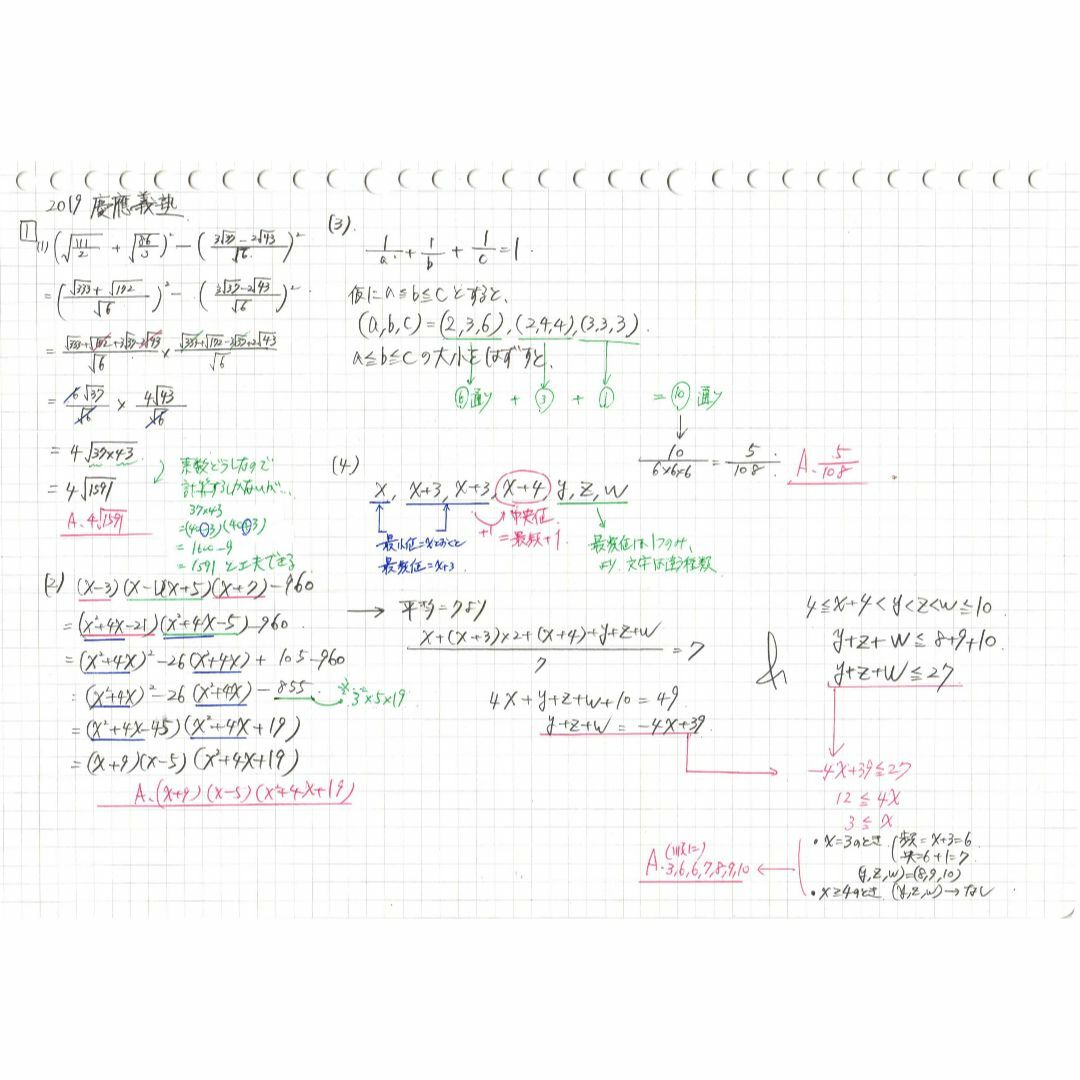 2019 慶應義塾
1
(1) (√111/2 + √86/3)² − (3√37−2√43/√6)²
= (√333+√172/√6)² − (3√37−2√43/√6)²
= √333+√172+3√37−2√43/√6 × √333+√172−3√37+2√43/√6
= 6√37/√6 × 4√43/√6
= 4√37×43
= 4√1591
A. 4√1591
素数どうしなので
計算するしかないが…
37×43
=(40−3)(40+3)
= 1600−9
= 1591 と工夫できる
(2) (x−3)(x−1)(x+5)(x+7)−960
= (x²+4x−21)(x²+4x−5)−960
= (x²+4x)²−26(x²+4x)+105−960
= (x²+4x)²−26(x²+4x)−855
※ 3²×5×19
= (x²+4x−45)(x²+4x+19)
= (x+9)(x−5)(x²+4x+19)
A. (x+9)(x−5)(x²+4x+19)
(3).
1/a + 1/b + 1/c = 1.
仮に a≦b≦c とすると、
(a,b,c) = (2,3,6), (2,4,4), (3,3,3).
a≦b≦c の大小をはずすと、
⑥通り + ③ + ① = ⑩通り
10/6×6×6 = 5/108.
A. 5/108
(4)
x, x+3, x+3, x+4, y, z, w
最小値=xとおくと
最頻値=x+3.
+1
中央値
=最頻+1.
最頻値は1つのみ、
より、文字は
→ 平均=7より
x+(x+3)×2+(x+4)+y+z+w/7 = 7
4x+y+z+w+10=49
y+z+w = −4x+39
&
4≦x+4<y<z<w≦10
y+z+w ≦ 8+9+10.
y+z+w ≦ 27
−4x+39≦27
12 ≦ 4x
3 ≦ x
・x=3のとき 最頻=x+3=6
中央=6+1=7
(y,z,w)=(8,9,10)
・x≧4のとき (y,z,w)→なし
(順に)
A. 3,6,6,7,8,9,10